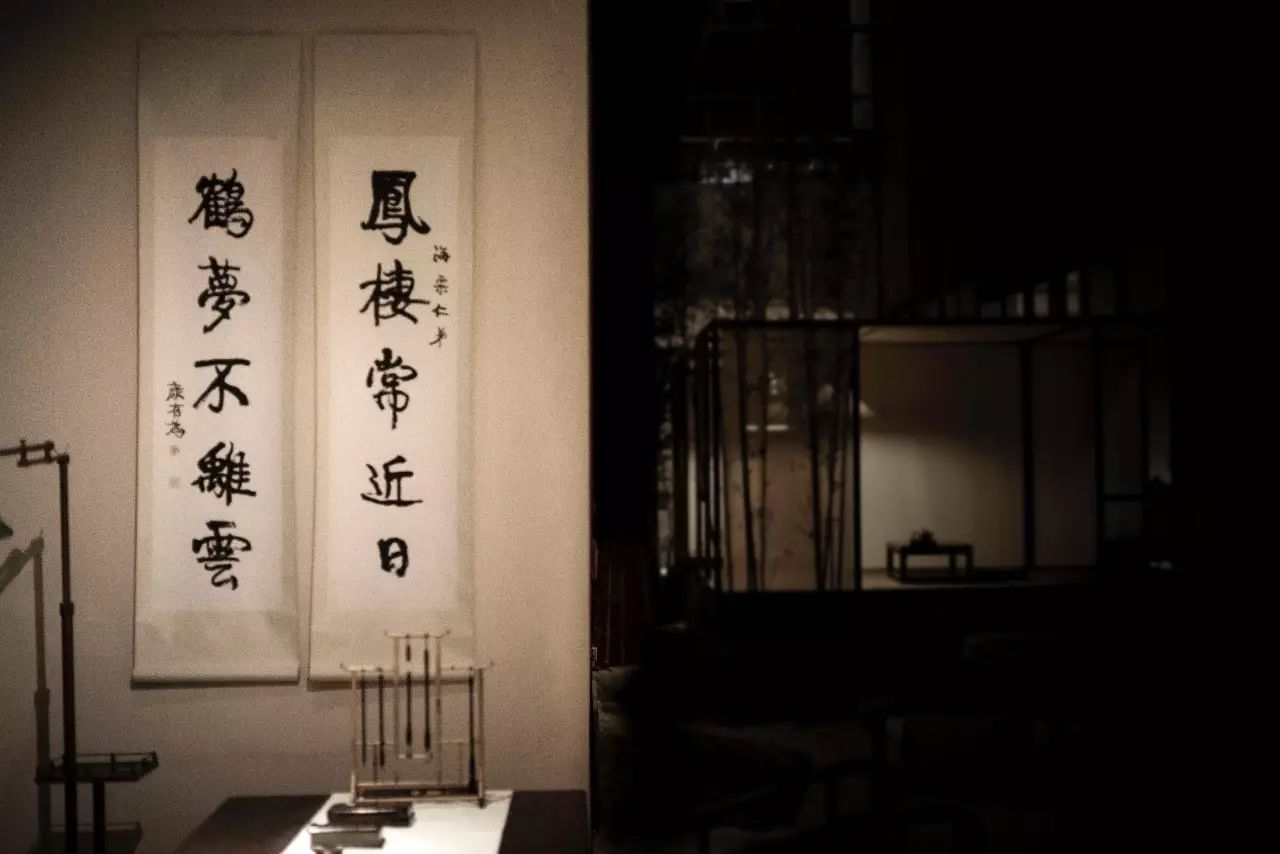 鳳棲常近日
海崇仁弟
鶴夢不離雲
康有為